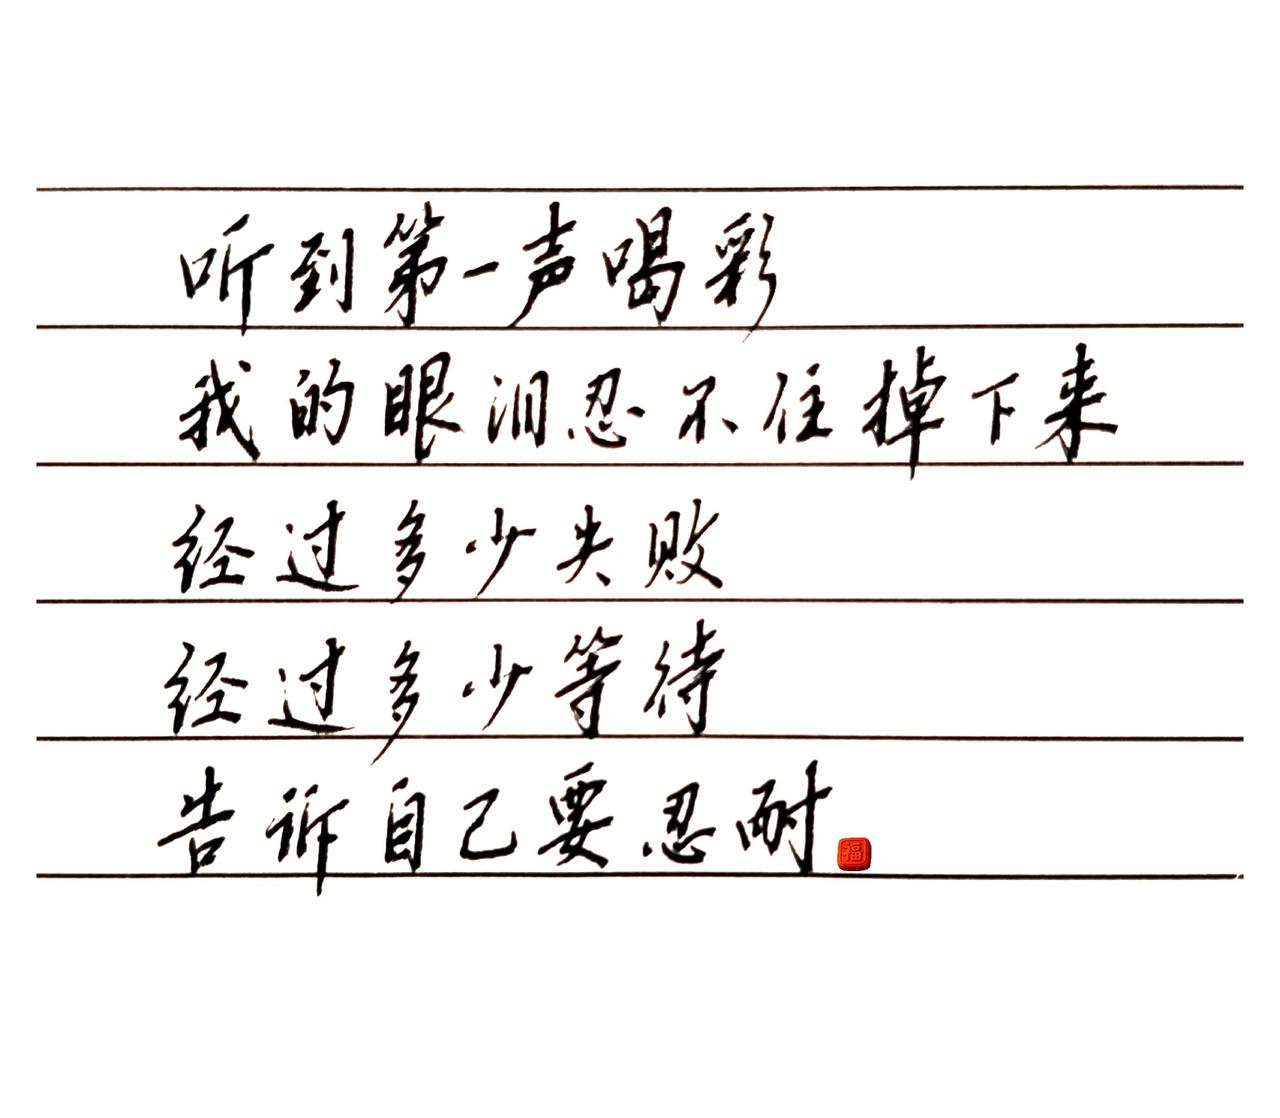 听到第一声喝彩
我的眼泪忍不住掉下来
经过多少失败
经过多少等待
告诉自己要忍耐
福